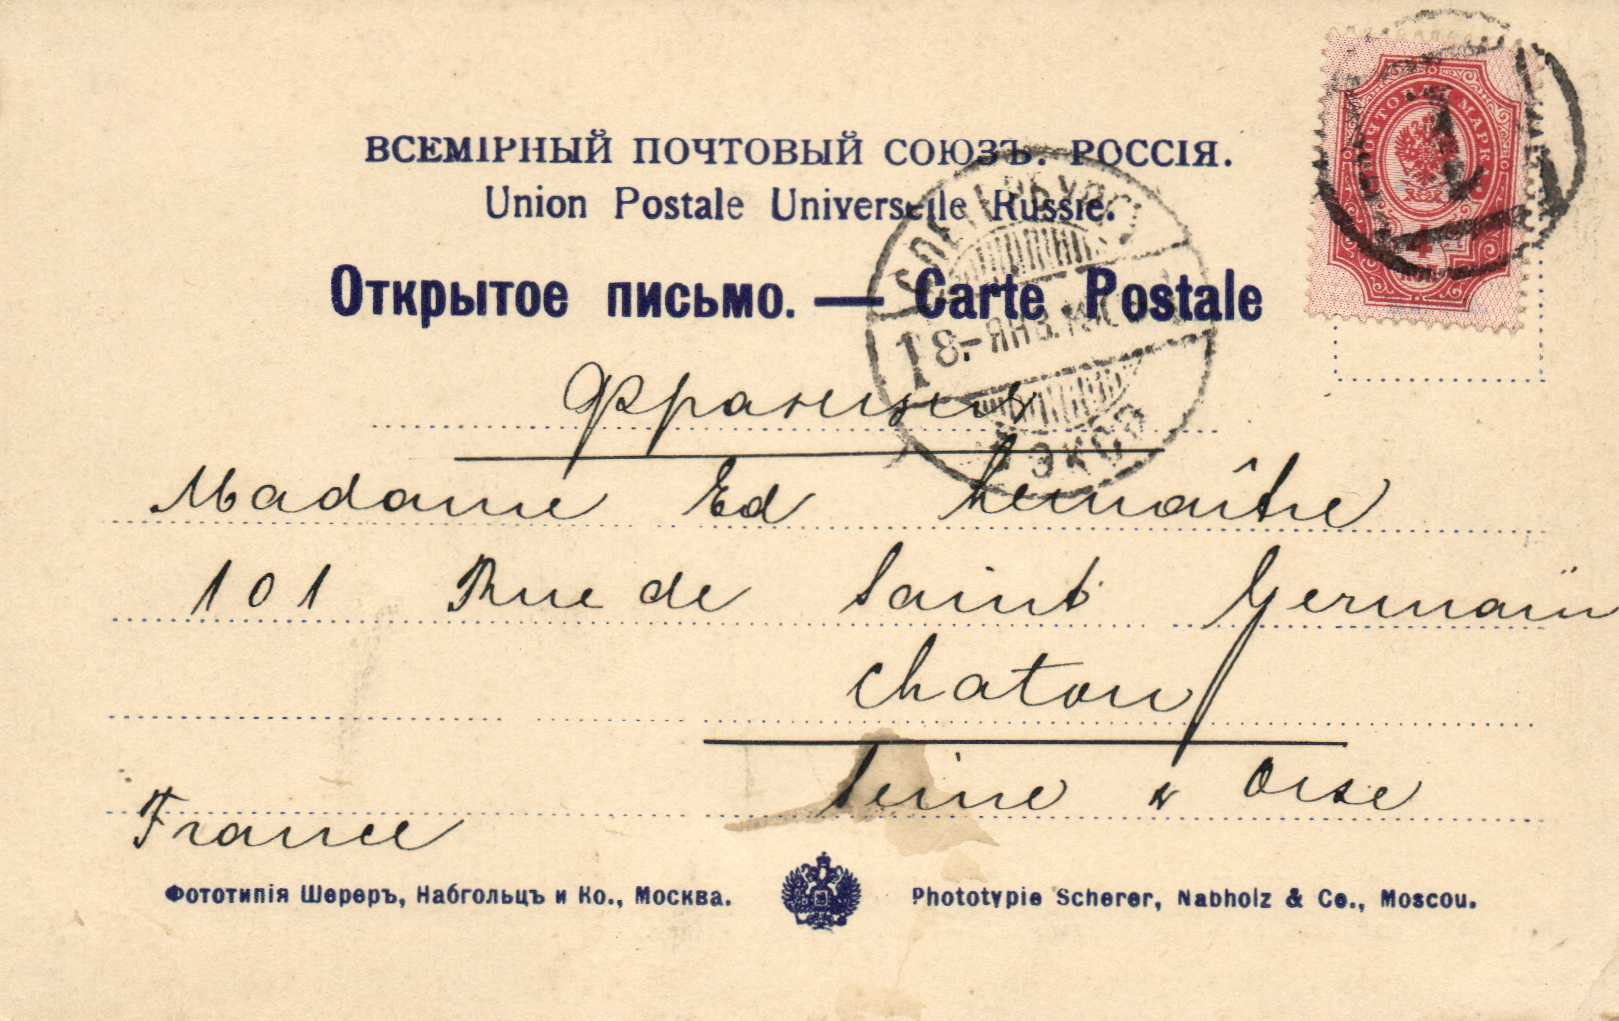 ПОЧТОВАЯ МАРКА
4
1
ВСЕМІРНЫЙ ПОЧТОВЫЙ СОЮЗЪ. РОССІЯ.
Union Postale Universelle Russie.
Открытое письмо. — Carte Postale
18-ЯНВ.
ЭКСП
Madame Ed Lemaître
101 Rue de Saint Germain
Chatou
Seine & Oise
France
Фототипія Шереръ, Набгольцъ и Ко., Москва.
Phototypie Scherer, Nabholz & Co., Moscou.